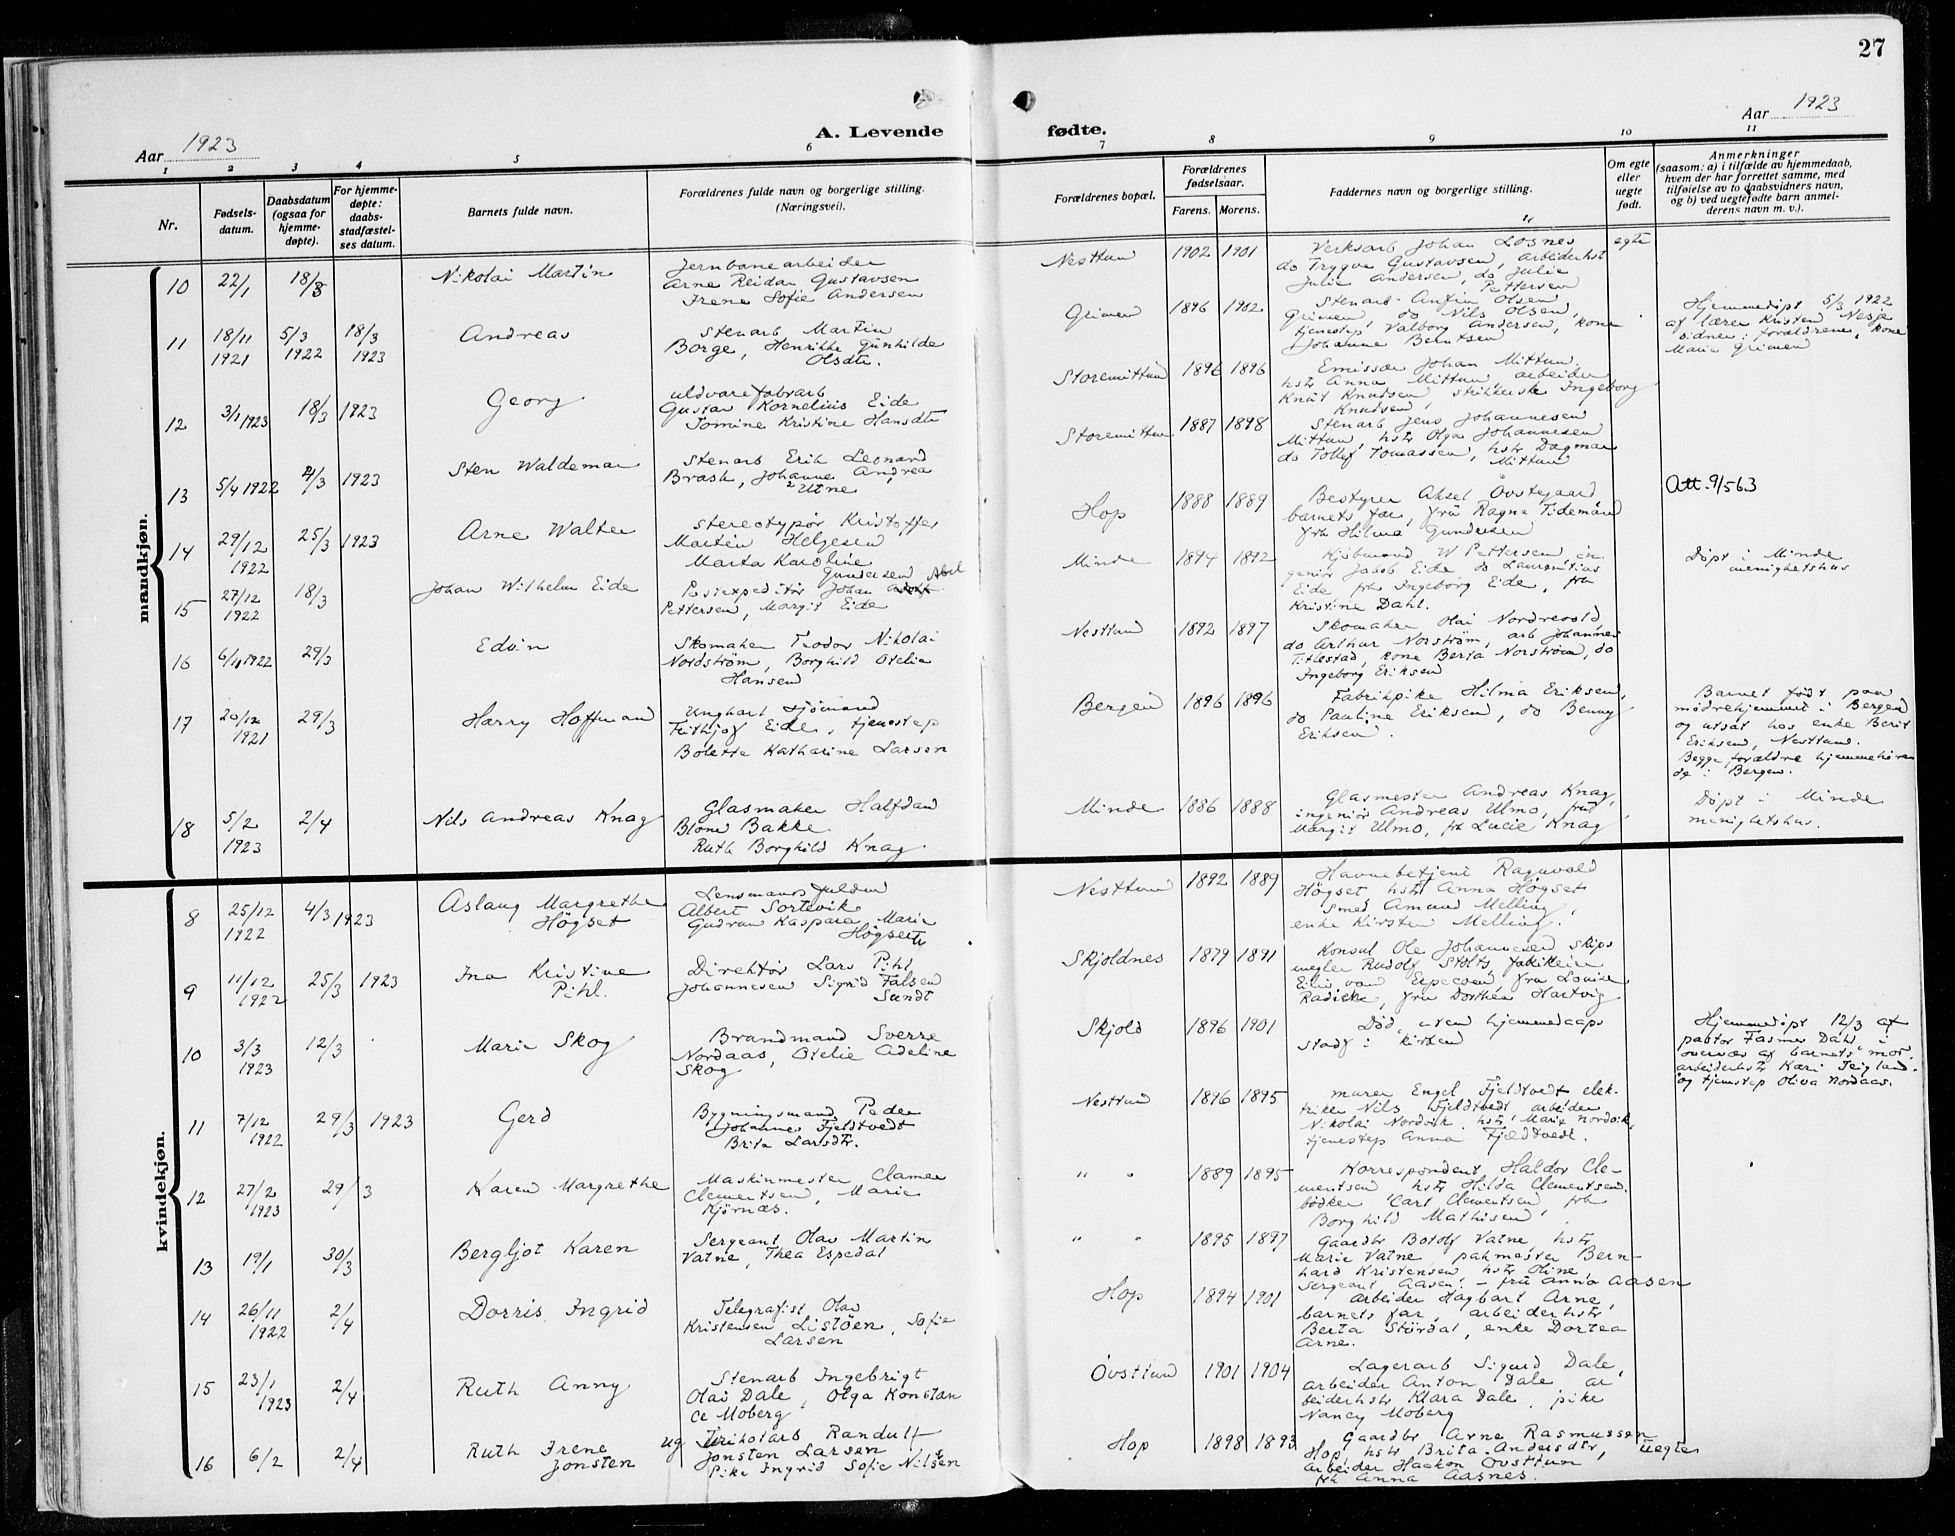 27
Aar 1923
A. Levende
fødte.
Aar 1923
1 2 3 4 5 6 7 8 9 10 11
Nr.
Fødsels-
datum.
Daabsdatum
(ogsaa for
hjemme-
døpte).
For hjemme-
døpte:
daabs-
stadfæstel-
ses datum.
Barnets fulde navn.
Forældrenes fulde navn og borgerlige stilling.
(Næringsvei).
Forældrenes bopæl.
Forældrenes
fødselsaar.
Farens. Morens.
Faddernes navn og borgerlige stilling.
Om egte
eller
uegte
født.
Anmerkninger
(saasom: a) i tilfælde av hjemmedaab,
hvem der har forrettet samme, med
tilføielse av to daabsvidners navn,
og b) ved uegtefødte barn anmel-
derens navn m. v.).
mandkjøn.
10 22/1 18/3 Nikolai Martin
Jernbanearbeider
Arne Reidar Gustavsen
Irene Sofie Andersen
Nesttun 1902 1901
Verksarb Johan Losnes
do Trygve Gustavsen, arbeiderhst
Julie Andersen, do Julie
Pettersen
egte
11 18/11 1921 5/3 1922 18/3 1923 Andreas
Stenarb Martin
Borge, Henrikke Gunhilde
Olsdtr.
Grimen 1896 1902
Stenarb Anfin Olsen
Grimen, do Nils Olsen,
tjenestep Valborg Andersen, kone
Johanne Berntsen
Hjemmedøpt 5/3 1922
af lærer Kristen Nesje
vidner: forældrene, kone
Marie Grimen
12 3/1 1923 18/3 1923 Georg
uldvarefabrarb
Gustav Kornelius Eide
Tomine Kristine Hansdtr
Storemittun 1896 1896
Emissær Johan Mittun,
hstr Anna Mittun, arbeider
Knut Knudsen, strikkerske Ingeborg
Knudsen
13 5/4 1922 4/3 1923 Sten Waldemar
Stenarb Erik Leonard
Brask, Johanne Andrea
Utne
Storemittun 1887 1898
Stenarb Jens Johannesen
Mittun, hstr Olga Johannesen
do Tollef Tomassen, hstr Dagmar
Mittun
Att. 9/563
14 29/12 1922 25/3 1923 Arne Walter
Stereotypør Kristoffer
Martin Helgesen
Marta Karoline
Gundersen
Hop 1888 1889
Bestyrer Aksel Øvstegaard
barnets far, fru Ragna Tidemand
frk Hilma Gundersen
15 27/12 1922 18/3 Johan Wilhelm Eide
Postexpeditør Johan Abel
Pettersen, Margit Eide
Minde 1894 1892
Kjøbmand W Pettersen, in-
geniør Jakob Eide do Laurentius
Eide, frk Ingeborg Eide, frk
Kristine Dahl.
Døpt i Minde
menighetshus
16 6/11 1922 29/3 Edvin
Skomaker Teodor Nikolai
Nordstrøm, Borghild Otelia
Hansen
Nesttun 1892 1897
Skomaker Olai Nordrevold
do Arthur Norström, arb Johannes
Titlestad, kone Berta Norström, do
Ingeborg Eriksen
17 20/12 1921 29/3 Harry Hoffmand
Ungkarl sjømand
Frithjof Eide, tjenestep
Bolette Katharine Larsen
Bergen 1896 1896
Fabrikpike Hilma Eriksen,
do Pauline Eriksen, do Benny
Eriksen.
Barnet født paa
mødrehjemmet i Bergen
og utsat hos enke Berit
Eriksen, Nesttun.
Begge forældre hjemmehøren
de i Bergen.
18 5/2 1923 2/4 Nils Andreas Knag
Glasmaker Halfdan
Blone Bakke
Ruth Borghild Knag.
Minde 1886 1888
Glasmester Andreas Knag,
ingeniør Andreas Ulmo, fru
Margit Ulmo, frk Lucie Knag
Døpt i Minde
menighetshus.
kvindekjøn.
8 25/12 1922 4/3 1923 Aslaug Margrethe
Høgset
Lensmandsfuldm
Albert Sortevik
Gudrun Kaspara Marie
Høgseth
Nesttun 1892 1889
Havnebetjent Ragnvald
Høgset, hstr Anna Høgset
Smed Amund Melling,
enke Kirsten Melling.
9 11/12 1922 25/3 1923 Ina Kristine
Pihl.
Direktør Lars Pihl
Johannesen Sigrid Falsen
Sundt
Skjoldnes 1879 1891
Konsul Ole Johannesen skips
megler Rudolf Stoltz fabrikeier
Eilif von Erpecom, fru Louise
Radicke, fru Dorthea Hartvig
10 3/3 1923 12/3 Marie Skog
Brandmand Sverre
Nordaas, Otelie Adeline
Skog
Skjold 1896 1901
Død uten hjemmedaaps
stadf i kirken
Hjemmedøpt 12/3 af
pastor Fasmer Dahl i
overvær af barnets mor
arbeiderhstr Kari Teigland
og tjenestep Oliva Nordaas.
11 7/12 1922 29/3 1923 Gerd
Bygningsmand Peder
Johannes Fjeldtvedt
Brita Larsdtr.
Nesttun 1896 1895
murer Engel Fjeldtvedt elek-
triker Nils Fjeldtvedt arbeider
Nikolai Nordvik. hstr Marie Nordvik,
tjenestep Anna Fjeldtvedt.
12 27/2 1923 29/3 Karen Margrethe
Maskinmester Clamer
Clementsen, Marie
Kjørnæs.
" " 1889 1895
Korrespondent Haldor Cle-
mentsen hstr Hilda Clementsen.
bødker Carl Clementsen frk
Borghild Mathisen
13 19/1 30/3 Bergljot Karen
Sergeant Olav Martin
Vatne, Thea Espedal
" " 1895 1897
Gaardbr Botolf Vatne hstr
Marie Vatne, pakmester Bern-
hard Kristensen hstr Oline,
Sergeant Aasen - fru Anna Aasen
14 26/11 1922 2/4 Dorris Ingrid
Telegrafist Olav
Kristensen Listöen, Sofie
Larsen
Hop 1894 1901
arbeider Hagbart Arne,
barnets far, arbeiderhstr
Berta Stördal, enke Dortea
Arne.
15 23/1 1923 2/4 Ruth Anny
Stenarb Ingebrigt
Olai Dale, Olga Konstan
ce Moberg
Øvsttun 1901 1904
Lagerarb Sigurd Dale,
arbeider Anton Dale ar
beiderhstr Klara Dale, pike
Nancy Moberg
16 6/2 2/4 Ruth Irene
Jonsten
ug Trikotarb Randulf
Jonsten Larsen
Pike Ingrid Sofie Nilsen
Hop 1898 1893
Gaardbr Arne Rasmussen
Hop, hstr Brita Andersdtr,
arbeider Haakon Øvsttun
frk Anna Aasnes.
uegte